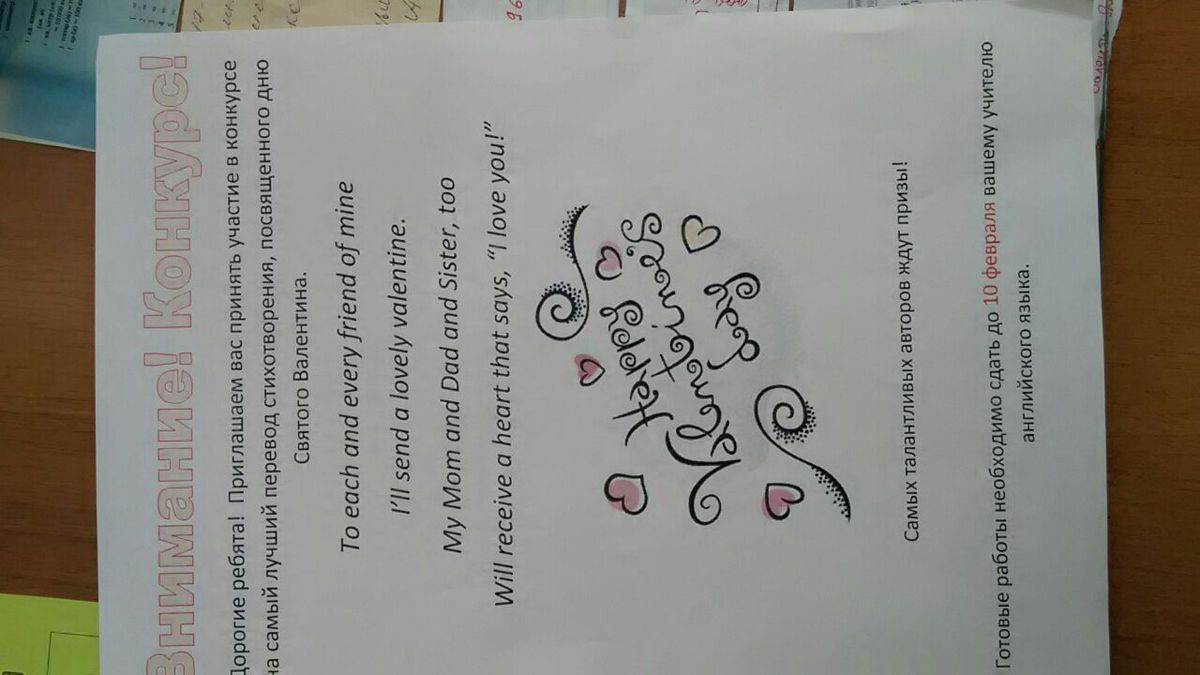 Внимание! Конкурс!
Дорогие ребята! Приглашаем вас принять участие в конкурсе
на самый лучший перевод стихотворения, посвященного дню
Святого Валентина.
To each and every friend of mine
I'll send a lovely valentine.
My Mom and Dad and Sister, too
Will receive a heart that says, “I love you!”
Happy
Valentine's
Day
Самых талантливых авторов ждут призы!
Готовые работы необходимо сдать до 10 февраля вашему учителю
английского языка.